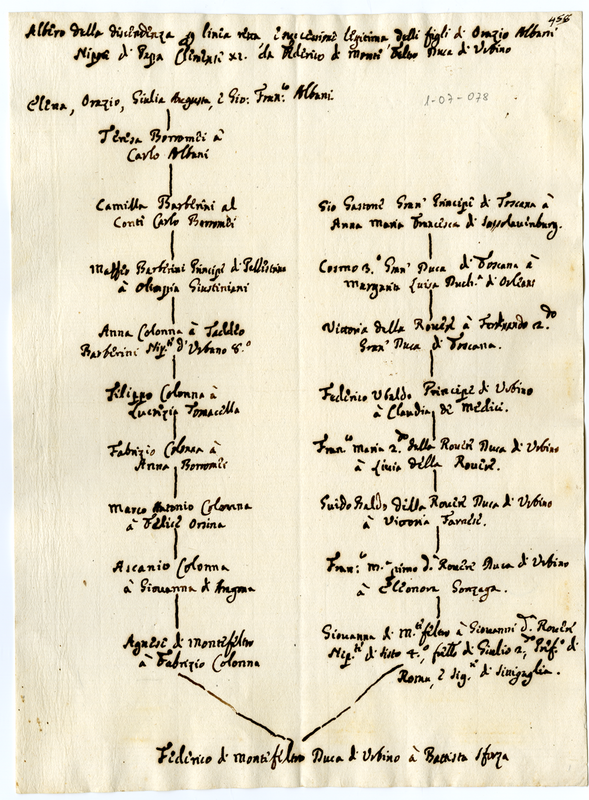 456
Albero della discendenza p linea retta e successione legitima delli figli di Orazio Albani
Nipǫ di Papa Clemente XI. da Federico di Monte Feltro Duca di Urbino
1-07-078
Elena, Orazio, Giulia Augusta, e Gio: Fran:co Albani.
Teresa Borromei à
Carlo Albani
Camilla Barberini al
Conte Carlo Borromei
Maffeo Barberini Principe di Pellestrina
à Olimpia Giustiniani
Anna Colonna à Taddeo
Barberini Nip:te d'Urbano 8.o
Filippo Colonna à
Lucrezia Tomacella
Fabrizio Colonna à
Anna Borromei
Marco Antonio Colonna
à Felice Orsina
Ascanio Colonna
à Giovanna d'Aragona
Agnese di Montefeltro
à Fabrizio Colonna
Gio Gastone Gran' Principe di Toscana à
Anna Maria Francesca di
Cosmo 3.o Gran' Duca di Toscana à
Margarita Luisa Duch.a di Orleans
Vittoria della Rovere à Ferdinando 2.do
Gran' Duca di Toscana.
Federico Ubaldo Principe di Urbino
à Claudia de Medici.
Fran:co Maria 2.do della Rovere Duca di Urbino
à Livia della Rovere.
Guido Baldo della Rovere Duca di Urbino
à Vittoria Farnese.
Fran:co M.a primo d. Rovere Duca di Urbino
à Eleonora Gonzaga.
Giovanna di M.tefeltro à Giovanni d. Rovere
Nip.te di Sisto 4.o, frat̃e di Giulio 2, Pref.o di
Roma, e Sig.re di Sinigaglia.
Federico di Montefeltro Duca di Urbino à Battista Sforza